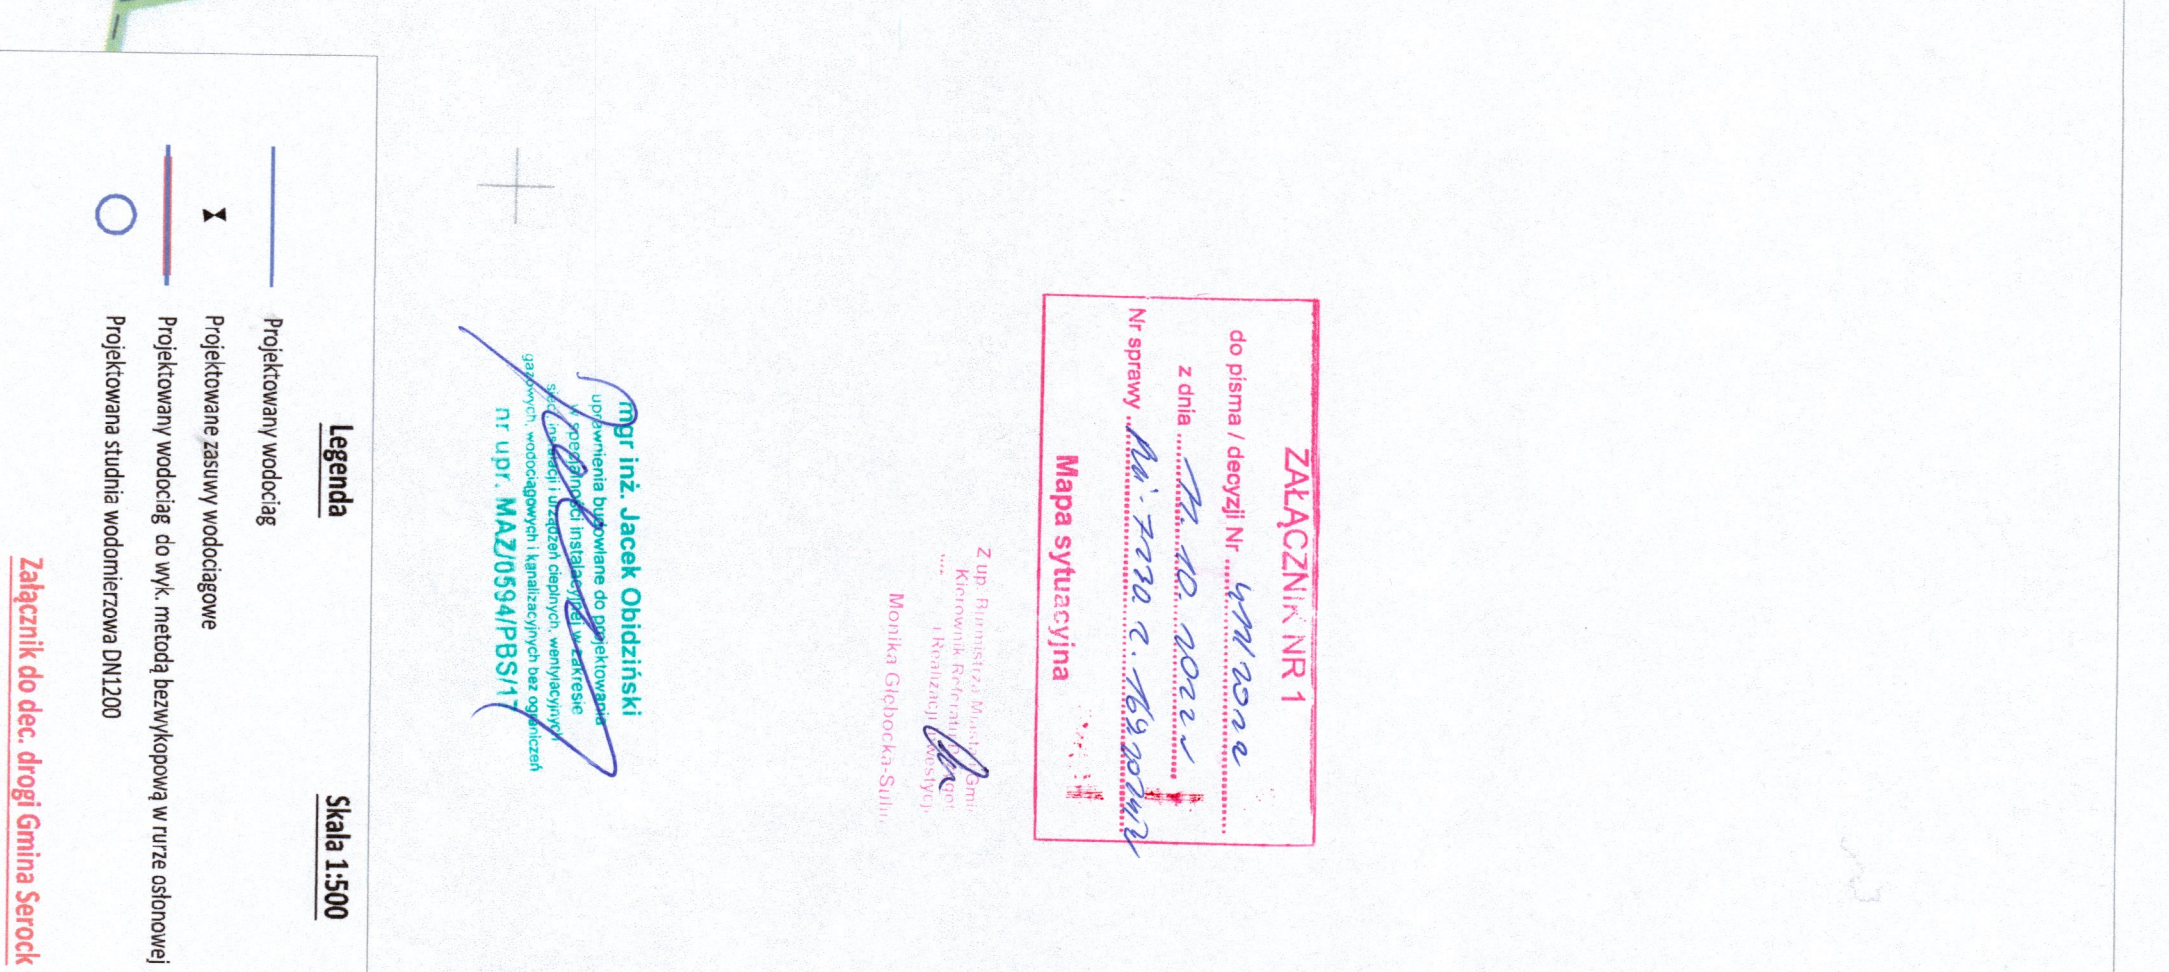 ZAŁĄCZNIK NR 1
do pisma / decyzji Nr
z dnia 11.10.2022
Nr sprawy
Mapa sytuacyjna
Z up. Burmistrza Miasta i Gmin
Kierownik Referatu
i Realizacji Inwestycji
Monika Głębocka-Suli
mgr inż. Jacek Obidziński
uprawnienia budowlane do projektowania
w specjalności instalacyjnej w zakresie
sieci, instalacji i urządzeń cieplnych, wentylacyjnych
gazowych, wodociągowych i kanalizacyjnych bez ograniczeń
nr upr. MAZ/0594/PBS/17
Legenda
Skala 1:500
Projektowany wodociąg
Projektowane zasuwy wodociągowe
Projektowany wodociąg do wyk. metodą bezwykopową w rurze osłonowej
Projektowana studnia wodomierzowa DN1200
Załącznik do dec. drogi Gmina Serock